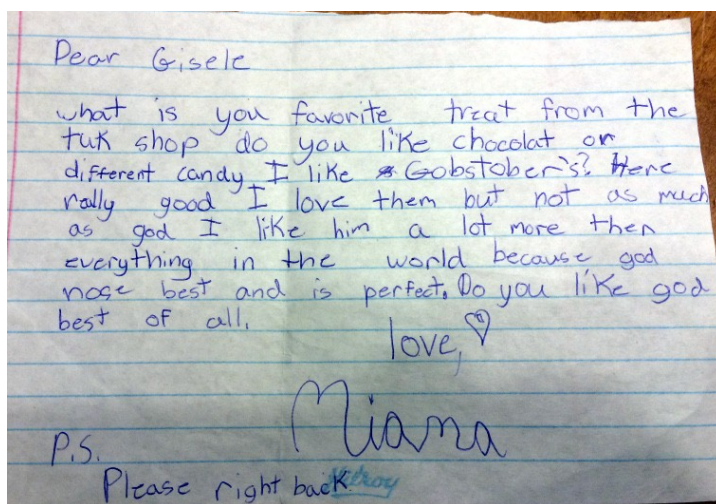 Dear Gisele
what is you favorite treat from the
tuk shop do you like chocolat or
different candy I like Gobstober's? Here
rally good I love them but not as much
as god I like him a lot more then
everything in the world because god
nose best and is perfect. Do you like god
best of all.
love,
Miana
P.S.
Please right back